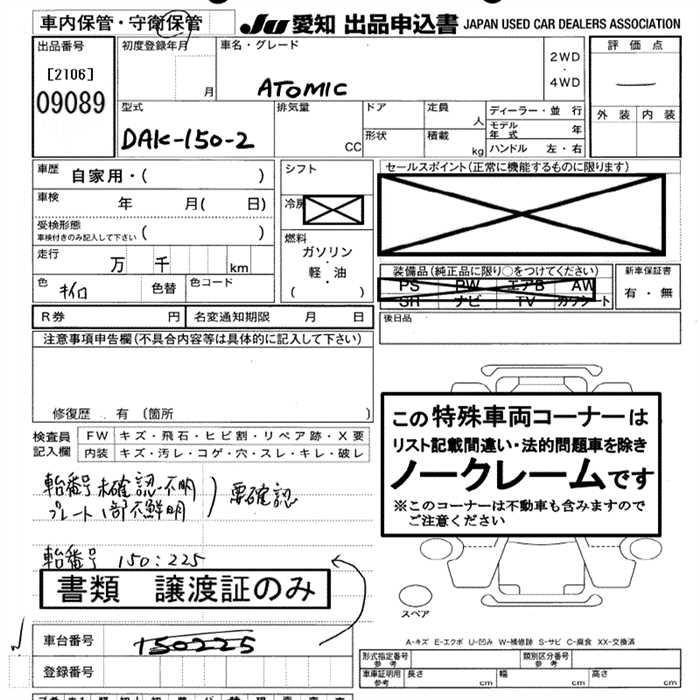 車内保管・守衛保管
JU 愛知 出品申込書 JAPAN USED CAR DEALERS ASSOCIATION
出品番号
[2106]
09089
初度登録年月
月
車名・グレード
ATOMIC
2WD
・
4WD
評価点
外装 内装
型式
DAK-150-2
排気量
CC
ドア
形状
定員
人
積載
kg
ディーラー・並行
モデル年式 年
ハンドル 左・右
車歴 自家用・( )
車検 年 月( 日)
受検形態
車検付きのみ記入して下さい ( )
走行 万 千 km
色 キイロ 色替 色コード
シフト
冷房
燃料
ガソリン
・
軽・油
( )
セールスポイント(正常に機能するものに限ります)
装備品(純正品に限り○をつけてください)
PS PW エアB AW
SR ナビ TV カワシート
新車保証書
有・無
R券 円 名変通知期限 月 日
後日品
注意事項申告欄(不具合内容等は具体的に記入して下さい)
修復歴 有(箇所 )
検査員記入欄
FW キズ・飛石・ヒビ割・リペア跡・X要
内装 キズ・汚レ・コゲ・穴・スレ・キレ・破レ
この特殊車両コーナーは
リスト記載間違い・法的問題車を除き
ノークレームです
※このコーナーは不動車も含みますので
ご注意ください
車台番号 未確認・不明
プレート1部不鮮明
要確認
車台番号 150:225
書類 譲渡証のみ
スペア
車台番号 150225
登録番号
A-キズ E-エクボ U-凹み W-補修跡 S-サビ C-腐食 XX-交換済
形式指定番号
参考
類別区分番号
参考
車庫証明用
参考
長さ cm 幅 cm 高さ cm